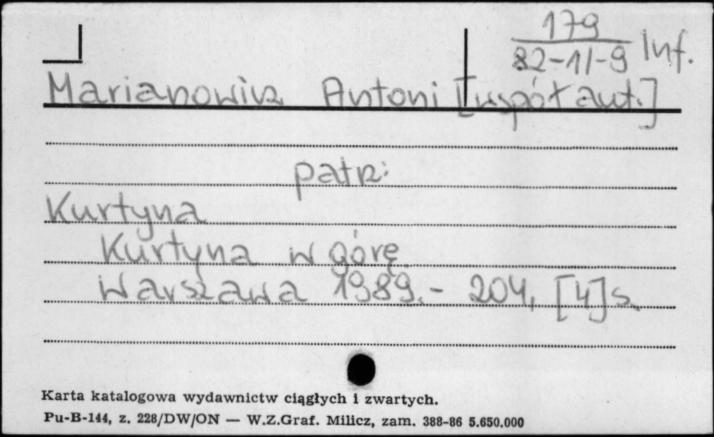 179
82-11-9 Inf.
Marianowicz Antoni [współaut.]
patrz:
Kurtyna
Kurtyna w górę
Warszawa 1989.- 204, [4] s.
Karta katalogowa wydawnictw ciągłych i zwartych.
Pu-B-144, z. 228/DW/ON — W.Z.Graf. Milicz, zam. 388-86 5.650.000